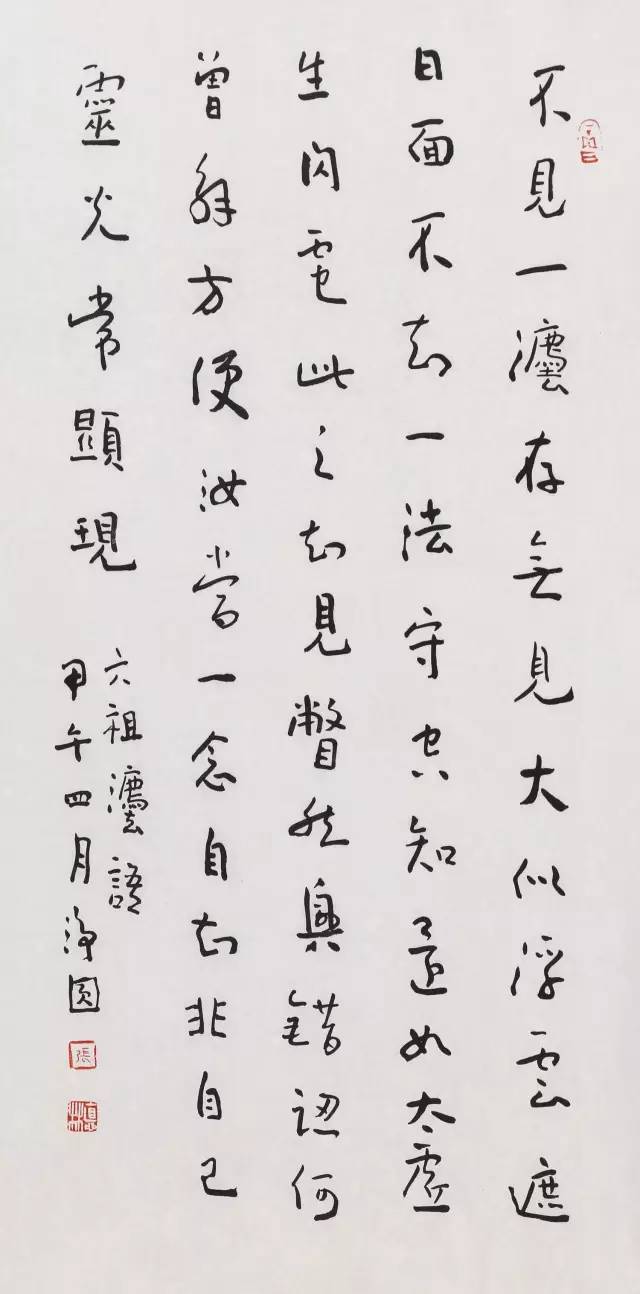 不見一灋存無見大似浮雲遮
日面不知一法守空知還如太虛
生閃電此之知見瞥然興錯認何
曾解方便汝當一念自知非自己
靈光常顯現
六祖灋語
甲午四月淨圓
張